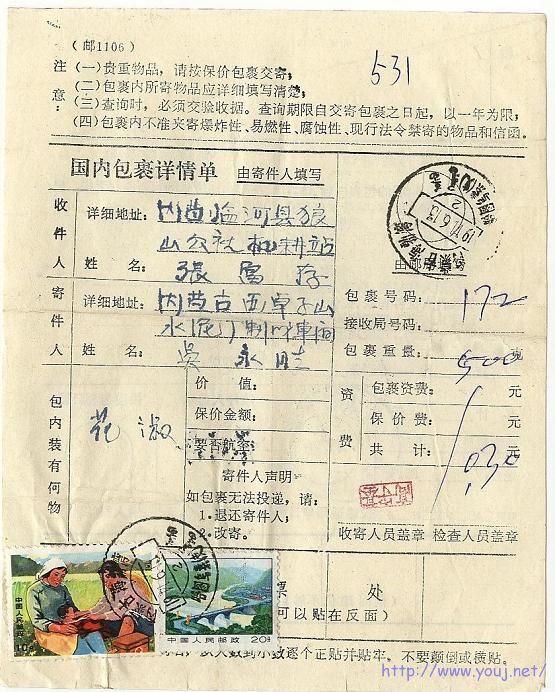 (邮1106)
531
注意：
(一)贵重物品，请按保价包裹交寄；
(二)包裹内所寄物品应详细填写清楚；
(三)查询时，必须交验收据。查询期限自交寄包裹之日起，以一年为限；
(四)包裹内不准夹寄爆炸性、易燃性、腐蚀性、现行法令禁寄的物品和信函。
国内包裹详情单 由寄件人填写
收件人
详细地址：内蒙临河县狼
山公社机耕站
姓名：張
由邮
寄件人
详细地址：内蒙古西卓子山
水泥厂制材車间
姓名：吳永
包裹号码：172
接收局号码：
包裹重量：500克
包内装有何物
花淑
价值：
保价金额：
要否航寄：
资费
包裹资费：元
保价费：元
共计：1.30元
寄件人声明
如包裹无法投递，请：
1.退还寄件人；
2.改寄。
收寄人员盖章 检查人员盖章
票 处
可以贴在反面)
中国人民邮政
10分
中国人民邮政 20分
从大数到小数逐个正贴并贴牢，不要颠倒或横贴。
http://www.youj.net/